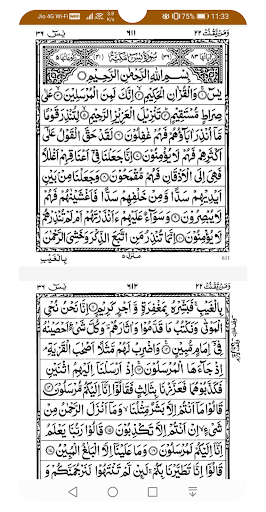 Jio 4G WiFi 3.8 K/s 75% 11:33
يٰسٓ ٣٦ ٦١١ وَمَنْ يَّقْنُتْ ٢٢
سُوْرَةُ يٰسٓ مَكِّيَّةٌ
بِسْمِ اللّٰهِ الرَّحْمٰنِ الرَّحِيْمِ
يٰسٓ ۝ وَالْقُرْاٰنِ الْحَكِيْمِ ۝ اِنَّكَ لَمِنَ الْمُرْسَلِيْنَ ۝ عَلٰى
صِرَاطٍ مُّسْتَقِيْمٍ ۝ تَنْزِيْلَ الْعَزِيْزِ الرَّحِيْمِ ۝ لِتُنْذِرَ قَوْمًا
مَّاۤ اُنْذِرَ اٰبَآؤُهُمْ فَهُمْ غٰفِلُوْنَ ۝ لَقَدْ حَقَّ الْقَوْلُ عَلٰۤى
اَكْثَرِهِمْ فَهُمْ لَا يُؤْمِنُوْنَ ۝ اِنَّا جَعَلْنَا فِيْۤ اَعْنَاقِهِمْ اَغْلٰلًا
فَهِيَ اِلَى الْاَذْقَانِ فَهُمْ مُّقْمَحُوْنَ ۝ وَجَعَلْنَا مِنْۢ بَيْنِ
اَيْدِيْهِمْ سَدًّا وَّمِنْ خَلْفِهِمْ سَدًّا فَاَغْشَيْنٰهُمْ فَهُمْ
لَا يُبْصِرُوْنَ ۝ وَسَوَآءٌ عَلَيْهِمْ ءَاَنْذَرْتَهُمْ اَمْ لَمْ تُنْذِرْهُمْ
لَا يُؤْمِنُوْنَ ۝ اِنَّمَا تُنْذِرُ مَنِ اتَّبَعَ الذِّكْرَ وَخَشِيَ الرَّحْمٰنَ
بِالْغَيْبِ منزل ٥ 611
يٰسٓ ٣٦ ٦١٢ وَمَنْ يَّقْنُتْ ٢٢
بِالْغَيْبِ ۚ فَبَشِّرْهُ بِمَغْفِرَةٍ وَّاَجْرٍ كَرِيْمٍ ۝ اِنَّا نَحْنُ نُحْيِ
الْمَوْتٰى وَنَكْتُبُ مَا قَدَّمُوْا وَاٰثَارَهُمْ ۚ وَكُلَّ شَيْءٍ اَحْصَيْنٰهُ
فِيْۤ اِمَامٍ مُّبِيْنٍ ۝ وَاضْرِبْ لَهُمْ مَّثَلًا اَصْحٰبَ الْقَرْيَةِ ۘ اِذْ
جَآءَهَا الْمُرْسَلُوْنَ ۝ اِذْ اَرْسَلْنَاۤ اِلَيْهِمُ اثْنَيْنِ
فَكَذَّبُوْهُمَا فَعَزَّزْنَا بِثَالِثٍ فَقَالُوْۤا اِنَّاۤ اِلَيْكُمْ مُّرْسَلُوْنَ ۝
قَالُوْا مَاۤ اَنْتُمْ اِلَّا بَشَرٌ مِّثْلُنَا ۙ وَمَاۤ اَنْزَلَ الرَّحْمٰنُ مِنْ
شَيْءٍ ۙ اِنْ اَنْتُمْ اِلَّا تَكْذِبُوْنَ ۝ قَالُوْا رَبُّنَا يَعْلَمُ
اِنَّاۤ اِلَيْكُمْ لَمُرْسَلُوْنَ ۝ وَمَا عَلَيْنَاۤ اِلَّا الْبَلٰغُ الْمُبِيْنُ ۝
قَالُوْۤا اِنَّا تَطَيَّرْنَا بِكُمْ ۚ لَئِنْ لَّمْ تَنْتَهُوْا لَنَرْجُمَنَّكُمْ وَ